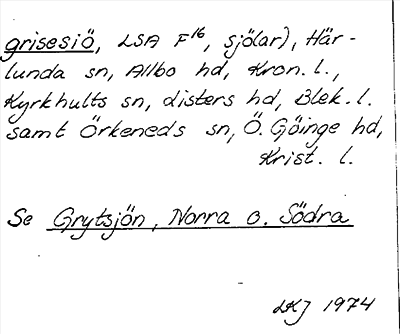 grisesiö, LSA F16, sjö(ar), Här-
lunda sn, Allbo hd, Kron. l.,
Kyrkhults sn, Listers hd, Blek. l.
samt Örkeneds sn, Ö. Göinge hd,
Krist. l.
Se Grytsjön, Norra o. Södra
1974